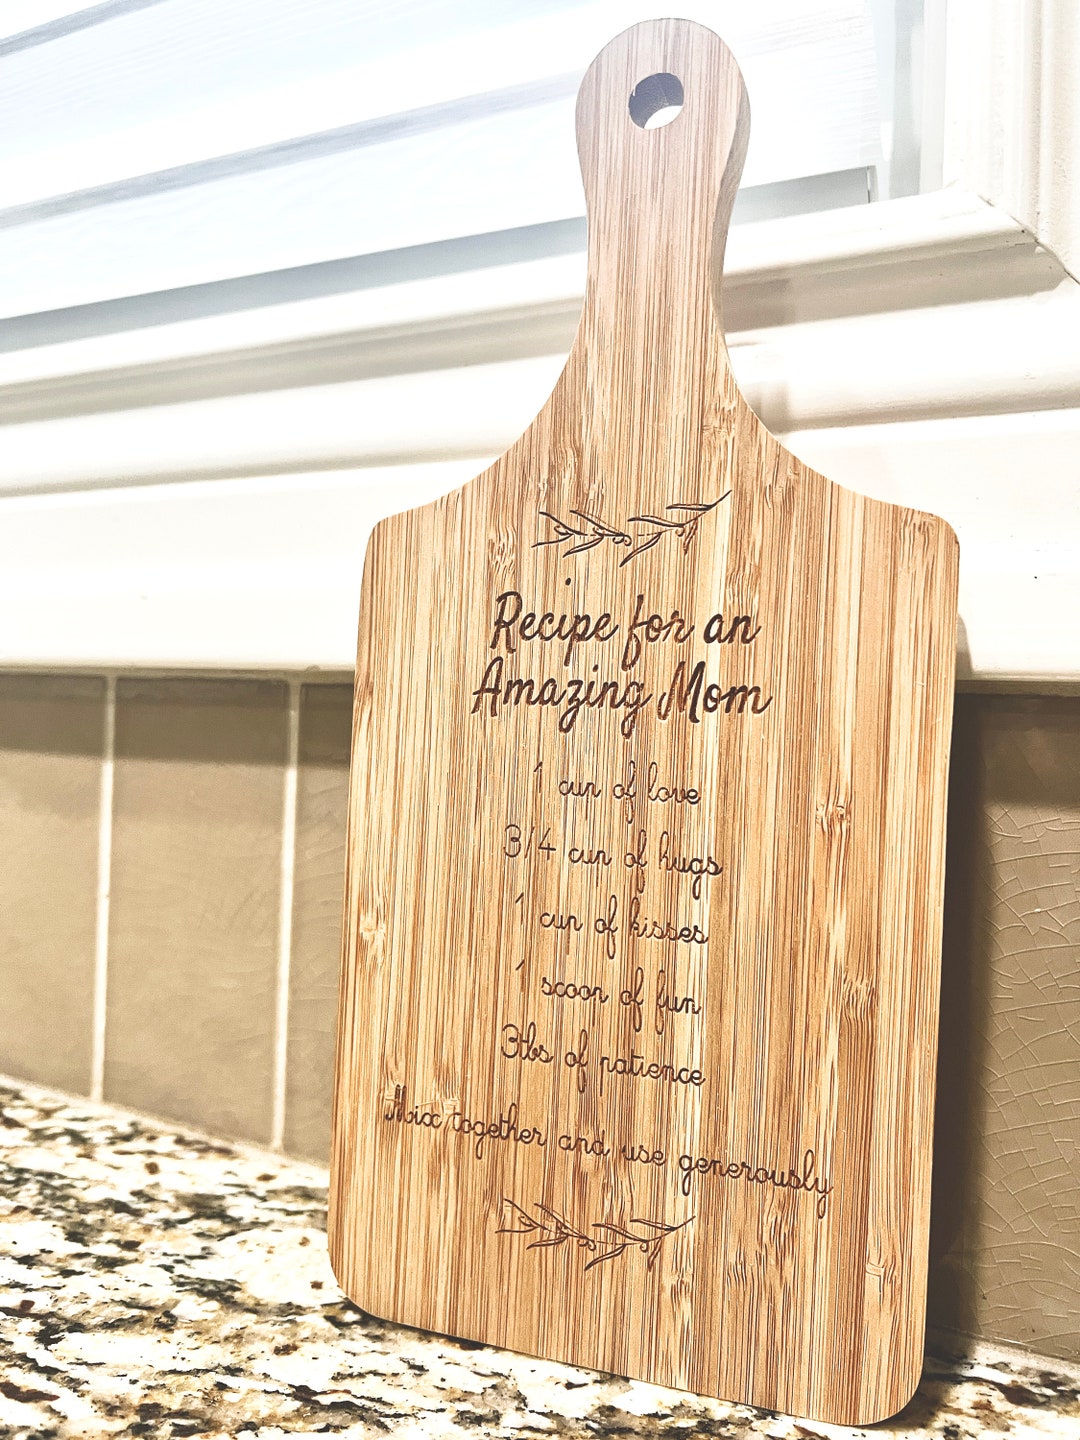 Recipe for an
Amazing Mom
1 cup of love
3/4 cup of hugs
1 cup of kisses
1 scoop of fun
3tbs of patience
Mix together and use generously